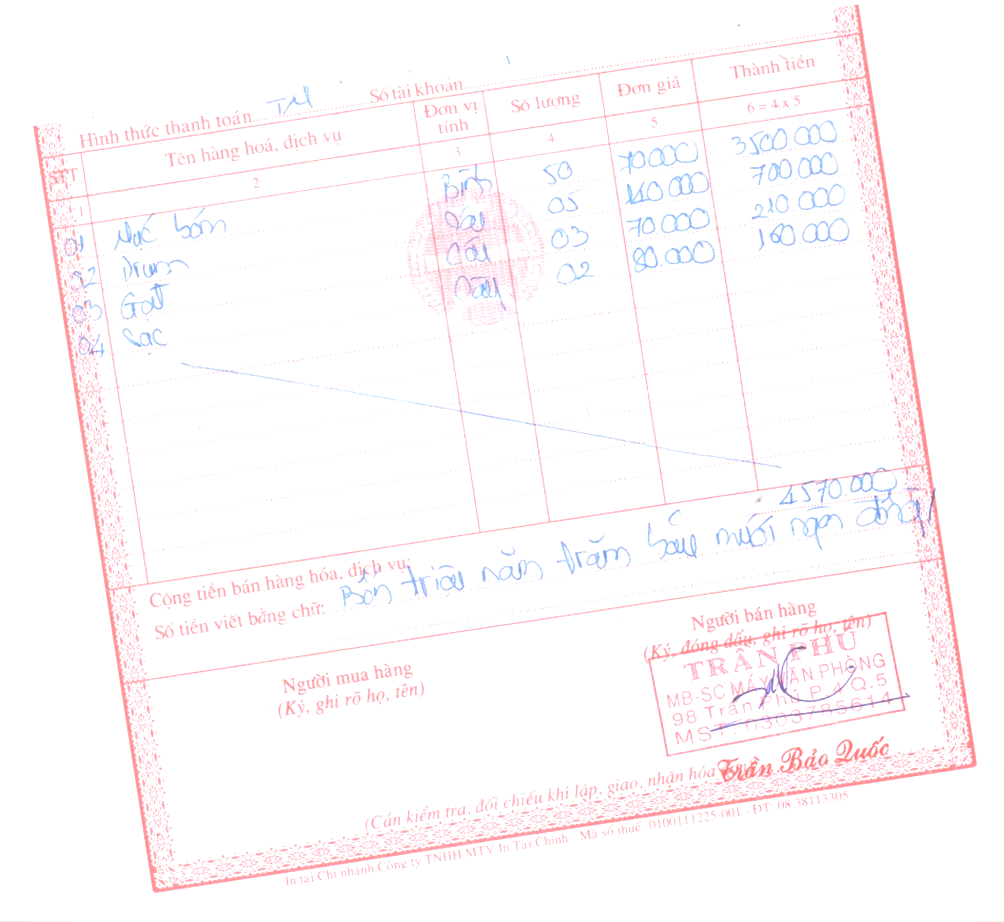 Hình thức thanh toán TM Số tài khoản
STT Tên hàng hoá, dịch vụ Đơn vị tính Số lượng Đơn giá Thành tiền
1 2 3 4 5 6 = 4 x 5
01 Mực bơm Bình 50 70000 3500.000
02 Drum Cái 05 140.000 700.000
03 Gạt Cái 03 70.000 210.000
04 Sạc Cây 02 80.000 160 000
Cộng tiền bán hàng hóa, dịch vụ: 4570.000
Số tiền viết bằng chữ: Bốn triệu năm trăm bảy mươi ngàn đồng
Người mua hàng
(Ký, ghi rõ họ, tên)
Người bán hàng
(Ký, đóng dấu, ghi rõ họ, tên)
TRẦN PHÚ
MB-SC MÁY VĂN PHÒNG
98 Trần Phú, P. Q.5
MST: 0303785614
Trần Bảo Quốc
(Cần kiểm tra, đối chiếu khi lập, giao, nhận hóa
In tại Chi nhánh Công ty TNHH MTV In Tài Chính - Mã số thuế: 0100111225-001 - ĐT: 08.38113305